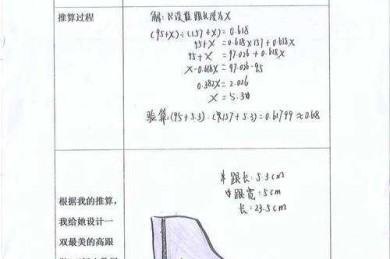 推算过程
解:设鞋跟长度为X
(95+X):(157+X)=0.618
95+X =0.618×157+0.618X
95+X =97.026+0.618X
X-0.618X=97.026-95
0.382X=2.026
X=5.30
验算:(95+5.3):(157+5.3)=0.61799≈0.618
根据我的推算,
我给她设计一
双最美的高跟
跟长:5.3cm
跟宽:5cm
长:23.5cm